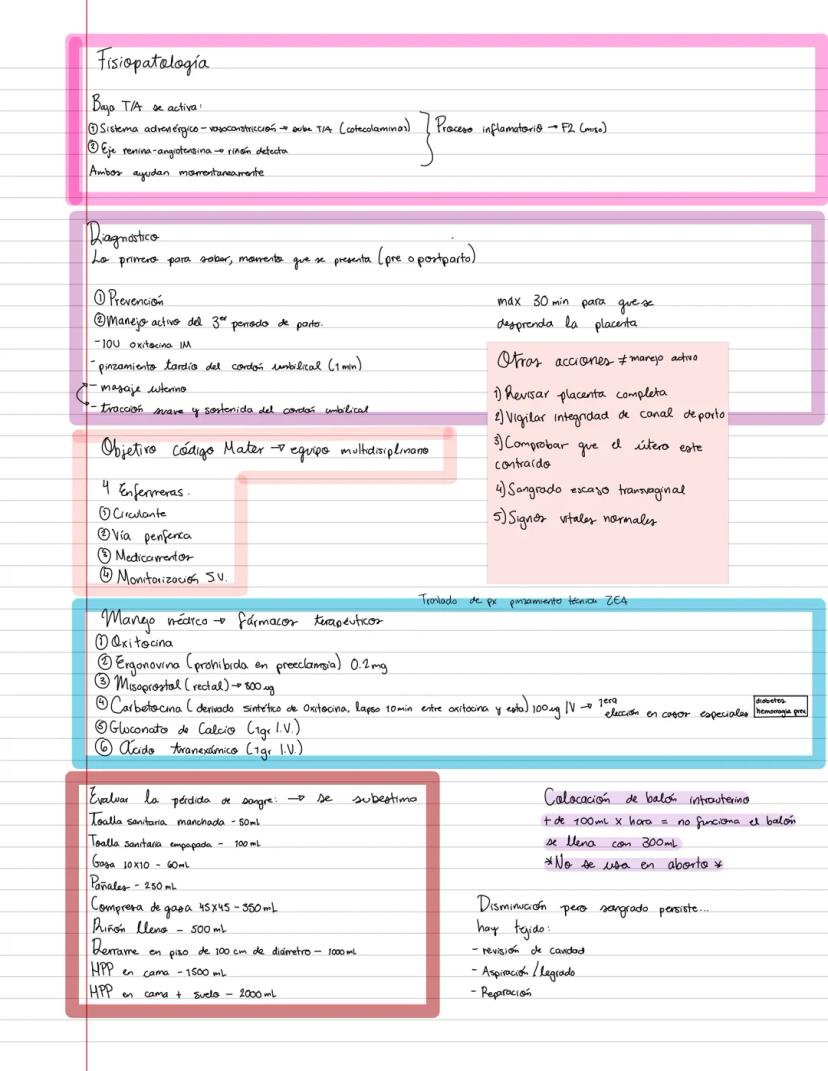 Fisiopatología
Baja T/A se activa:
① Sistema adrenérgico - vasoconstricción → sube T/A (catecolaminas)
② Eje renina-angiotensina → riñón detecta
Proceso inflamatorio → F2 (miso)
Ambos ayudan momentaneamente
Diagnóstico
Lo primero para saber, momento que se presenta (pre o postparto)
① Prevención
② Manejo activo del 3er periodo de parto.
- 10U oxitocina IM
- pinzamiento tardío del cordón umbilical (1 min)
- masaje uterino
- tracción suave y sostenida del cordón umbilical
máx 30 min para que se
desprenda la placenta
Otras acciones ≠ manejo activo
1) Revisar placenta completa
2) Vigilar integridad de canal de parto
3) Comprobar que el útero este
contraído
4) Sangrado escaso transvaginal
5) Signos vitales normales
Objetivo código Mater → equipo multidisiplinario
4 Enfermeras.
① Circulante
② Vía periferica
③ Medicamentos
④ Monitorización S.V.
Traslado de px pinzamiento técnica ZEA
Manejo médico → fármacos terapéuticos
① Oxitocina
② Ergonovina (prohibida en preeclamsia) 0.2mg
③ Misoprostol (rectal) → 800 ug
④ Carbetocina (derivado sintético de Oxitocina, lapso 10min entre oxitocina y esta) 100ug IV → 1era elección en casos especiales
diabetes
hemorragia prec
⑤ Gluconato de Calcio (1gr I.V.)
⑥ Ácido tranexámico (1gr I.V.)
Evaluar la pérdida de sangre: → se subestima
Toalla sanitaria manchada - 50mL
Toalla sanitaria empapada - 100 mL
Gasa 10x10 - 60mL
Pañales - 250 mL
Compresa de gasa 45x45 - 350mL
Riñón lleno - 500 mL
Derrame en piso de 100 cm de diámetro - 1000 mL
HPP en cama - 1500 mL
HPP en cama + suelo - 2000 mL
Colocación de balón intrauterino
+ de 100mL x hora = no funciona el balón
se llena con 300mL
*No se usa en aborto*
Disminución pero sangrado persiste...
hay tejido:
- revisión de cavidad
- Aspiración / legrado
- Reparación